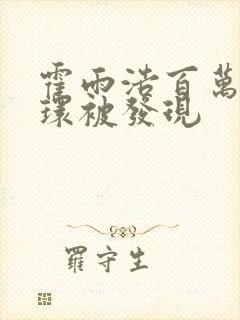 霍雨浩百萬
環被發現
羅守生